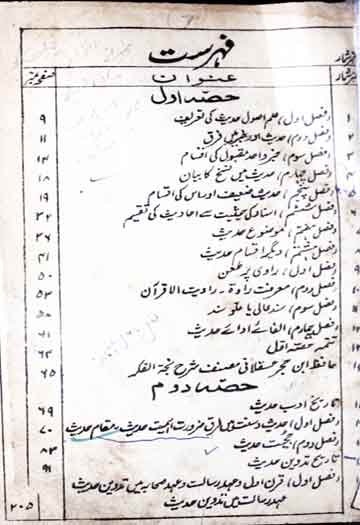 فہرست
نمبر شمار عنوان صفحہ نمبر
حصہ اول
۱ (فصل اول) علم اصول حدیث کی تعریف ۹
(فصل دوم) حدیث اور خبر میں فرق ۱۱
(فصل سوم) خبر واحد مقبول کی اقسام ۱۴
(فصل چہارم) حدیث میں نسخ کا بیان ۱۸
(فصل پنجم) حدیث ضعیف اور اس کی اقسام ۱۹
(فصل ششم) اسناد کی حیثیت سے احادیث کی تقسیم ۳۲
(فصل ہفتم) موضوع حدیث ۳۶
(فصل ہشتم) دیگر اقسام حدیث ۴۱
(فصل اول) راوی پر طعن ۵۰
(فصل دوم) معرفت راوۃ - روایت الاقرآن ۵۳
(فصل سوم) سند عالی یا علو سند ۵۸
(فصل چہارم) الفاظ ادائے حدیث ۶۱
تتمہ حصہ اول ۶۳
حافظ ابن حجر عسقلانی مصنف شرح نخبۃ الفکر ۶۵
حصہ دوم
تاریخ ادب حدیث ۶۹
(فصل اول) حدیث و سنت میں فرق ضرورت اہمیت حدیث، مقام حدیث ۷۰
(فصل دوم) حجیت حدیث ۸۳
تاریخ تدوین حدیث ۹۱
(فصل اول) قرن اول و عہد رسالت و عہد صحابہ میں تدوین حدیث
عہد رسالت میں تدوین حدیث
۲۰۵